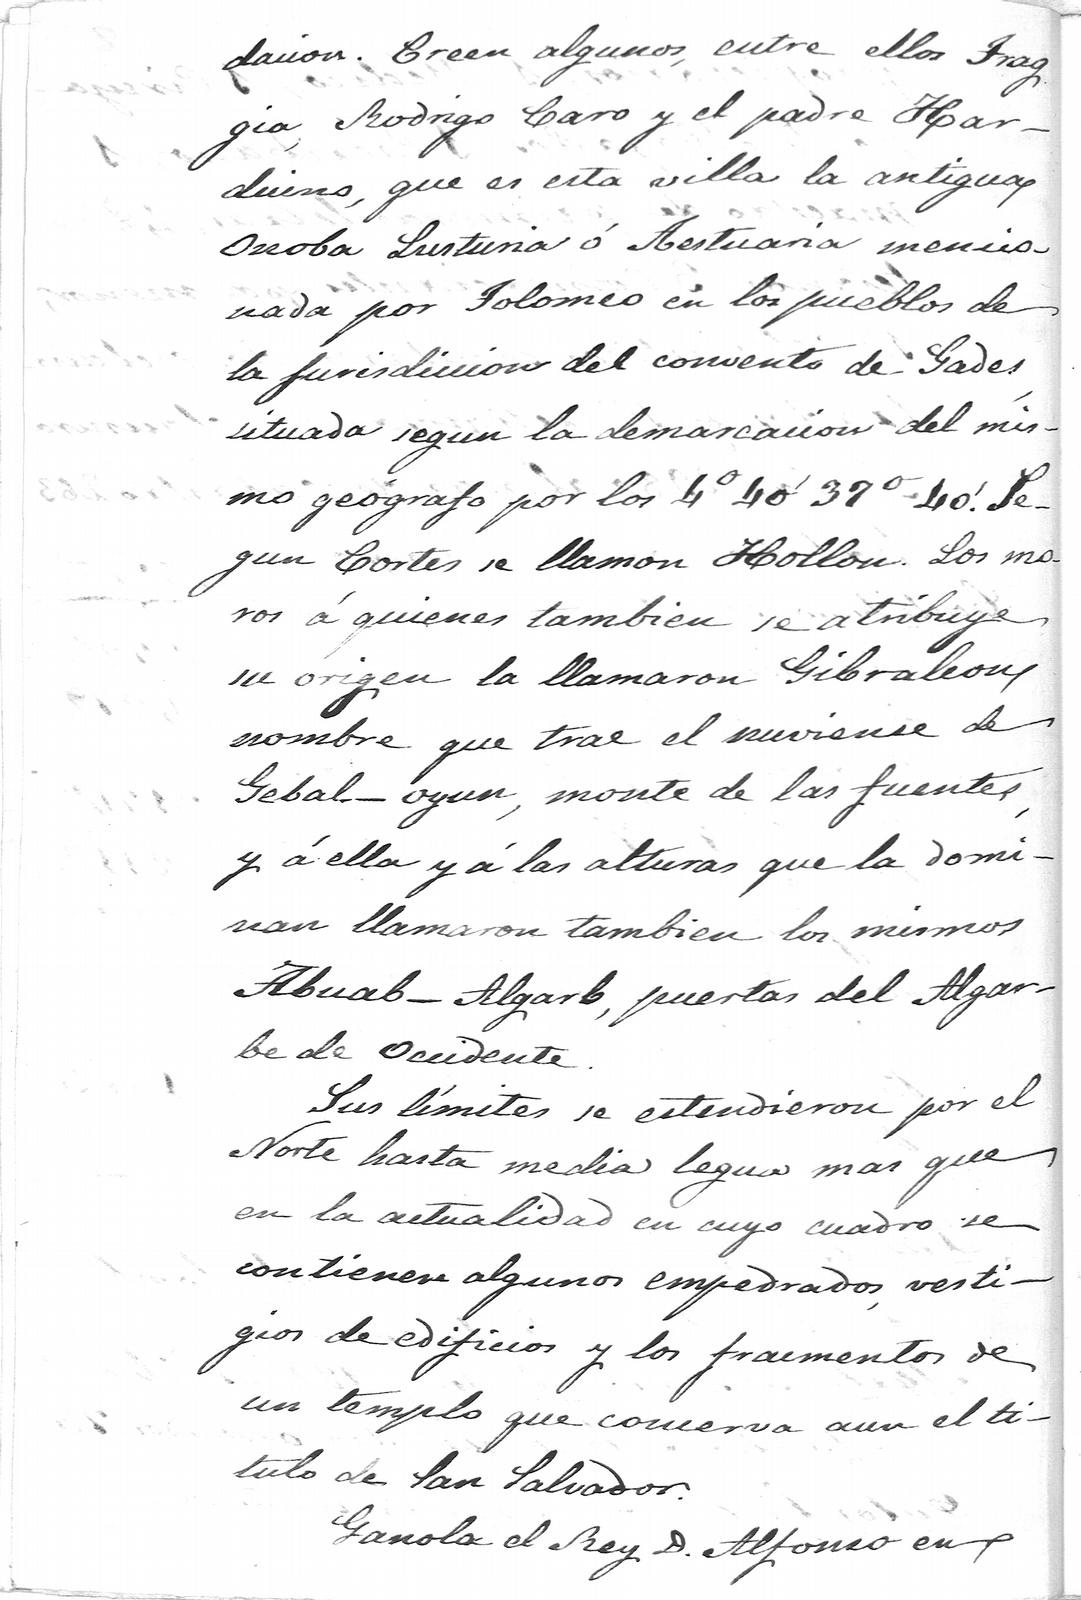 dacion. Creen algunos, entre ellos Frag
gia, Rodrigo Caro y el padre Har-
duino, que es esta villa la antigua
Onoba Lusturia ó Aestuaria mencio-
nada por Tolomeo en los pueblos de
la jurisdiccion del convento de Gades,
situada segun la demarcacion del mis-
mo geógrafo por los 4º 40' 37º 40'. Se-
gun Cortes se llamon Hollon. Los mo-
ros á quienes tambien se atribuye
su origen la llamaron Gibraleon,
nombre que trae el nuviense de
Gebal-oyun, monte de las fuentes,
y á ella y á las alturas que la domi-
nan llamaron tambien los mismos
Abuab-Algarb, puertas del Algar-
be de Occidente.
Sus límites se estendieron por el
Norte hasta media legua mas que
en la actualidad en cuyo cuadro se
contienen algunos empedrados, vesti-
gios de edificios y los fracmentos de
un templo que conserva aun el ti-
tulo de San Salvador.
Ganola el Rey D. Alfonso en